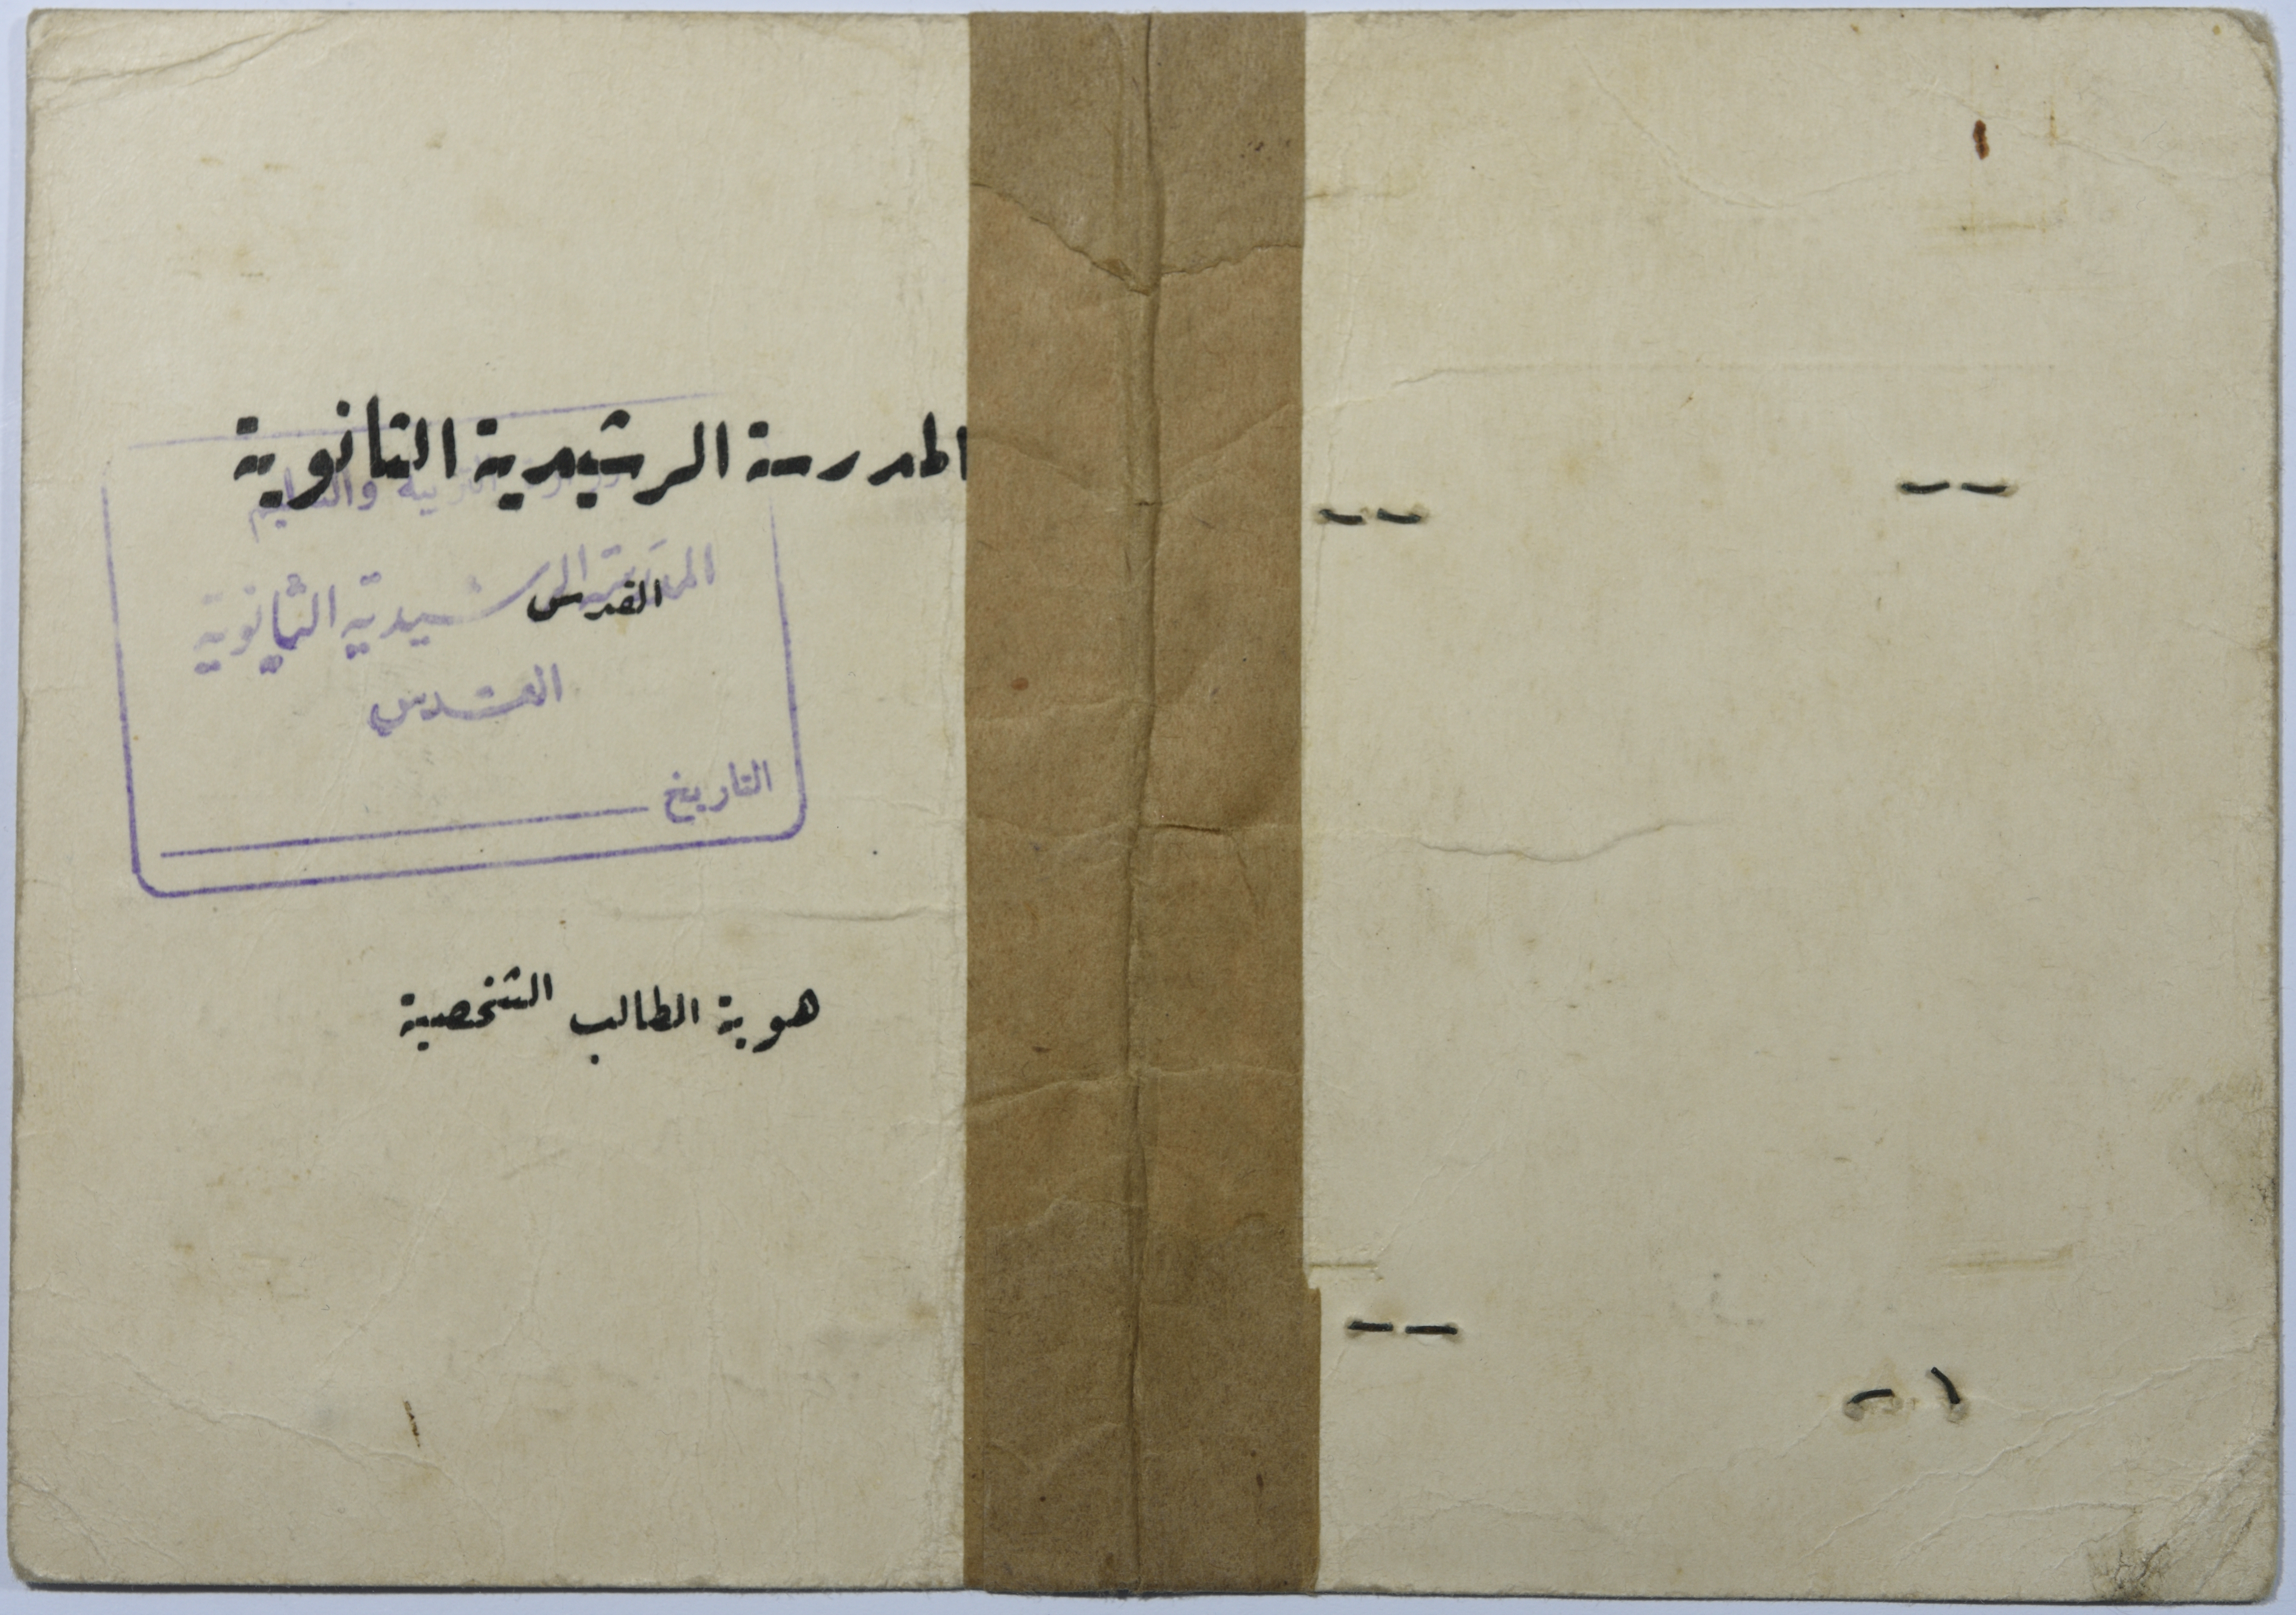 المدرسة الرشيدية الثانوية
القدس
والتعليم
المدرسة الرشيدية الثانوية
القدس
التاريخ
هوية الطالب الشخصية